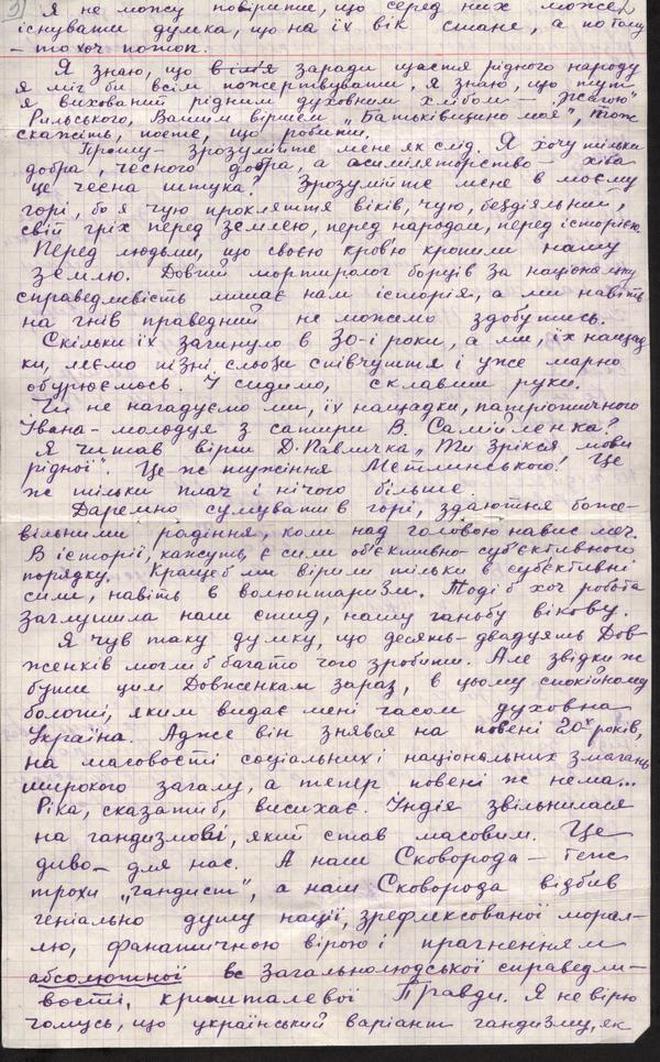 9)
Я не можу повірити, що серед них може
існувати думка, що на їх вік стане, а потому
– то хоч потоп.
Я знаю, що в ім'я заради щастя рідного народу
я міг би всім пожертвувати, я знаю, що тут
я вихований рідним духовним хлібом – „Жагою"
Рильського, Вашим віршем „Батьківщино моя", тож
скажіть, поете, що робити.
Прошу – зрозумійте мене як слід. Я хочу тільки
добра, чесного добра, а асиміляторство – хіба
це чесна штука? Зрозумійте мене в моєму
горі, бо я чую прокляття віків, чую, бездіяльний,
свій гріх перед землею, перед народом, перед історією.
Перед людьми, що своєю кров'ю кропили нашу
землю. Довгий мортиролог борців за національну
справедливість лишає нам історія, а ми навіть
на гнів праведний не можемо здобутись.
Скільки їх загинуло в 30-і роки, а ми, їх нащад
ки, ллємо пізні сльози співчуття і уже марно
обурюємось. І сидимо, склавши руки.
Чи не нагадуємо ми, їх нащадки, патріотичного
Івана – молодця з сатири В. Самійленка?
Я читав вірш Д. Павличка „Ти зрікся мови
рідної". Це ж тужіння Метлинського! Це
ж тільки плач і нічого більше.
Даремно сумувати в горі, здаються боже-
вільними радіння коли над головою навис меч.
В історії, кажуть, є сили об'єктивно-суб'єктивного
порядку. Краще б ми вірили тільки в суб'єктивні
сили, навіть в волюнтаризм. Тоді б хоч робота
заглушила наш стид, нашу ганьбу вікову.
Я чув таку думку, що десять-двадцять Дов-
женків могли б багато чого зробити. Але звідки ж
бути цим Довженкам зараз, в цьому спокійному
болоті, яким видає мені часом духовна
Україна. Адже він знявся на повені 20х років,
на масовості соціальних і національних змагань
широкого загалу, а тепер повені ж нема...
Ріка, сказати б, висихає. Індія звільнилася
на гандизмові, який став масовим. Це
диво – для нас. А наш Сковорода – теж
трохи „гандист", а наш Сковорода відбив
геніально душу нації, зрефлексованої морал-
лю, фанатичною вірою і прагненням
абсолютної всезагальнолюдської справедли-
вості, кришталевої Правди. Я не вірю
чомусь, що український варіант гандизму, як